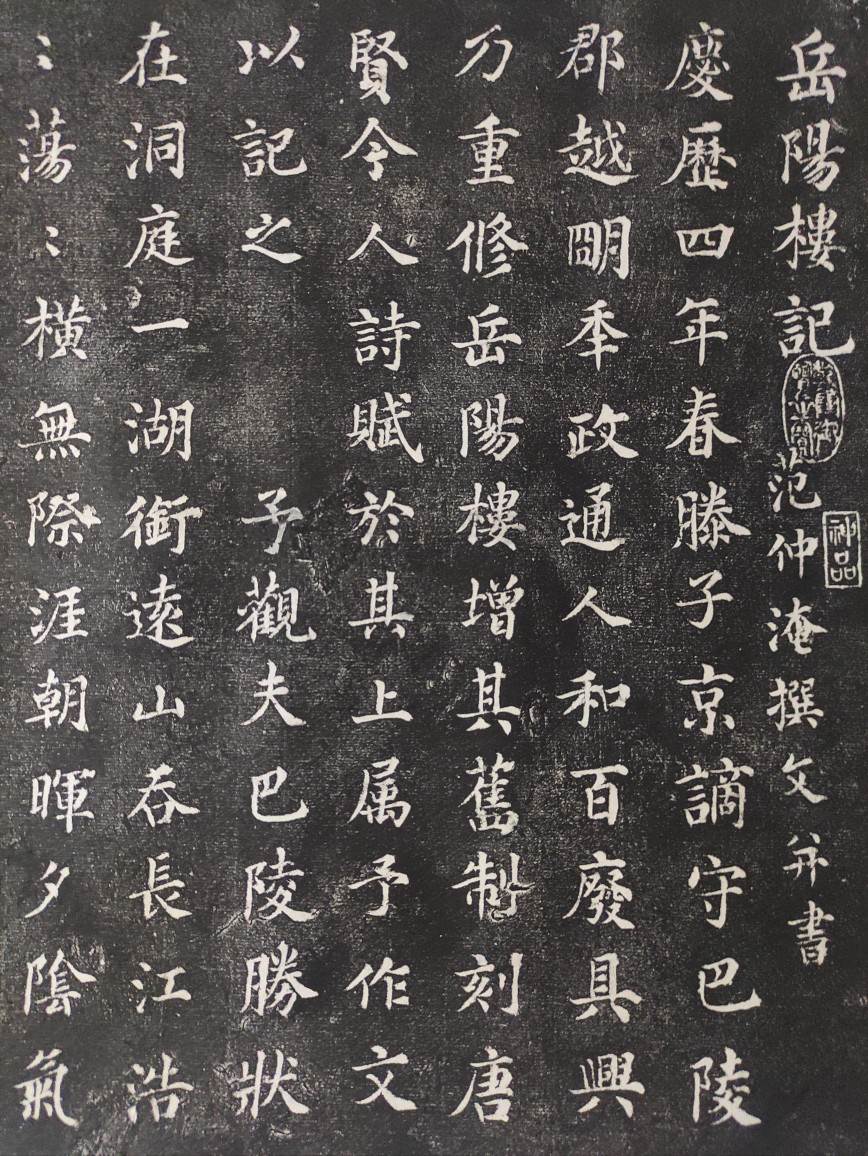 岳陽樓記 范仲淹撰文并書
神品
慶歷四年春滕子京謫守巴陵
郡越明年政通人和百廢具興
乃重修岳陽樓增其舊制刻唐
賢今人詩賦於其上属予作文
以記之 予觀夫巴陵勝狀
在洞庭一湖銜遠山吞長江浩
〻蕩〻橫無際涯朝暉夕陰氣